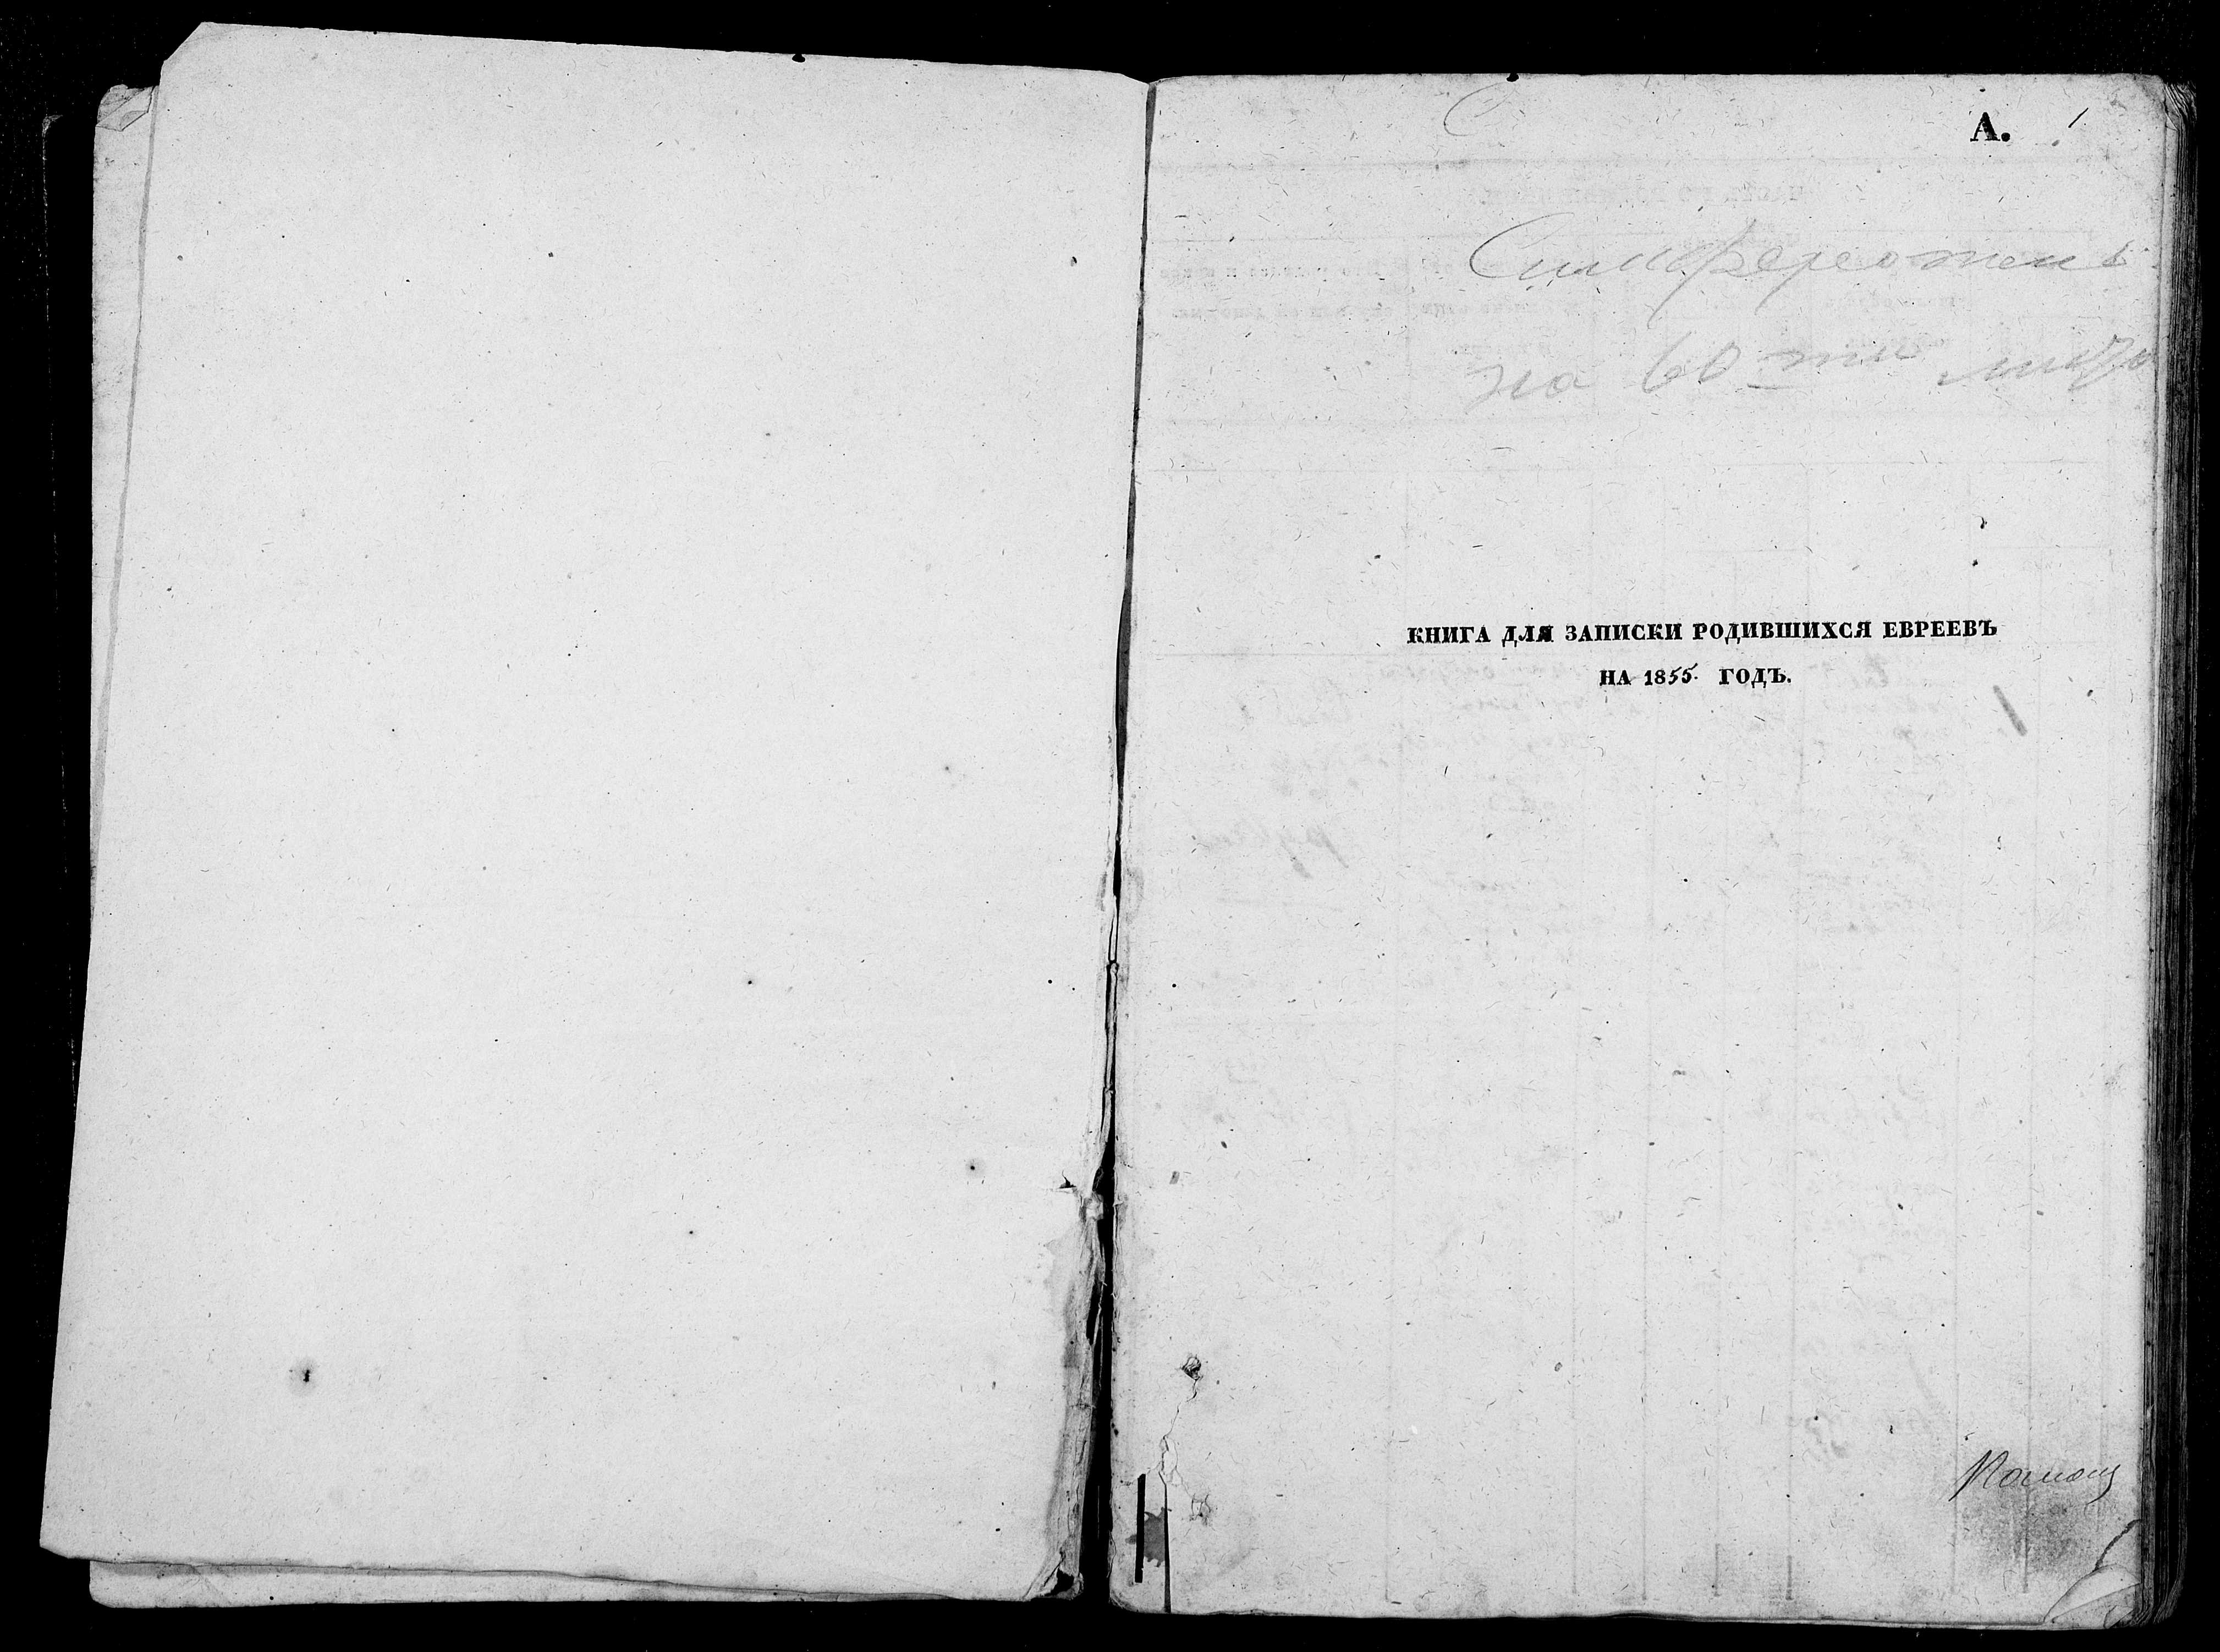 А. 1
Симферополь
на 60 ти
КНИГА ДЛЯ ЗАПИСКИ РОДИВШИХСЯ ЕВРЕЕВЪ
НА 1855. ГОДЪ.